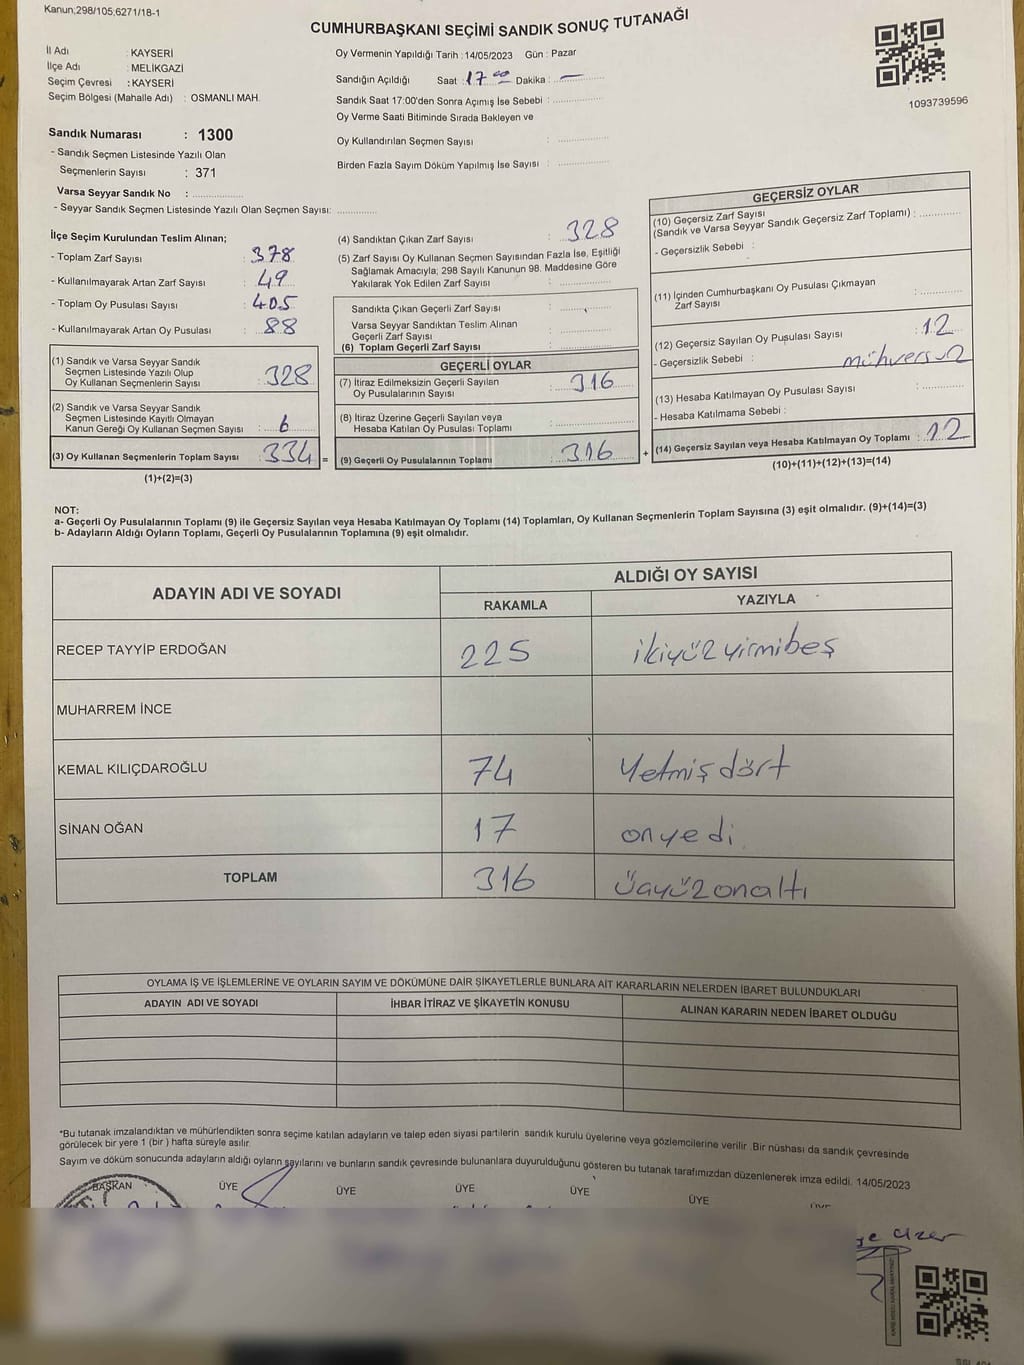 Kanun:298/105,6271/18-1
CUMHURBAŞKANI SEÇİMİ SANDIK SONUÇ TUTANAĞI
İl Adı : KAYSERİ
İlçe Adı : MELİKGAZİ
Seçim Çevresi : KAYSERİ
Seçim Bölgesi (Mahalle Adı) : OSMANLI MAH.
Sandık Numarası : 1300
- Sandık Seçmen Listesinde Yazılı Olan
Seçmenlerin Sayısı : 371
Varsa Seyyar Sandık No :
- Seyyar Sandık Seçmen Listesinde Yazılı Olan Seçmen Sayısı:
Oy Vermenin Yapıldığı Tarih : 14/05/2023 Gün : Pazar
Sandığın Açıldığı Saat : 17 00 Dakika : —
Sandık Saat 17:00'den Sonra Açımış İse Sebebi :
Oy Verme Saati Bitiminde Sırada Bekleyen ve
Oy Kullandırılan Seçmen Sayısı :
Birden Fazla Sayım Döküm Yapılmış İse Sayısı :
1093739596
İlçe Seçim Kurulundan Teslim Alınan;
- Toplam Zarf Sayısı : 378
- Kullanılmayarak Artan Zarf Sayısı : 49
- Toplam Oy Pusulası Sayısı : 405
- Kullanılmayarak Artan Oy Pusulası : 88
(1) Sandık ve Varsa Seyyar Sandık
Seçmen Listesinde Yazılı Olup
Oy Kullanan Seçmenlerin Sayısı : 328
(2) Sandık ve Varsa Seyyar Sandık
Seçmen Listesinde Kayıtlı Olmayan
Kanun Gereği Oy Kullanan Seçmen Sayısı : 6
(3) Oy Kullanan Seçmenlerin Toplam Sayısı : 334 =
(1)+(2)=(3)
(4) Sandıktan Çıkan Zarf Sayısı : 328
(5) Zarf Sayısı Oy Kullanan Seçmen Sayısından Fazla İse, Eşitliği
Sağlamak Amacıyla; 298 Sayılı Kanunun 98. Maddesine Göre
Yakılarak Yok Edilen Zarf Sayısı :
Sandıkta Çıkan Geçerli Zarf Sayısı :
Varsa Seyyar Sandıktan Teslim Alınan
Geçerli Zarf Sayısı :
(6) Toplam Geçerli Zarf Sayısı :
GEÇERLİ OYLAR
(7) İtiraz Edilmeksizin Geçerli Sayılan
Oy Pusulalarının Sayısı : 316
(8) İtiraz Üzerine Geçerli Sayılan veya
Hesaba Katılan Oy Pusulası Toplamı :
(9) Geçerli Oy Pusulalarının Toplamı : 316 +
GEÇERSİZ OYLAR
(10) Geçersiz Zarf Sayısı
(Sandık ve Varsa Seyyar Sandık Geçersiz Zarf Toplamı) :
- Geçersizlik Sebebi :
(11) İçinden Cumhurbaşkanı Oy Pusulası Çıkmayan
Zarf Sayısı :
(12) Geçersiz Sayılan Oy Pusulası Sayısı : 12
- Geçersizlik Sebebi :
(13) Hesaba Katılmayan Oy Pusulası Sayısı :
- Hesaba Katılmama Sebebi :
(14) Geçersiz Sayılan veya Hesaba Katılmayan Oy Toplamı : 12
(10)+(11)+(12)+(13)=(14)
NOT:
a- Geçerli Oy Pusulalarının Toplamı (9) ile Geçersiz Sayılan veya Hesaba Katılmayan Oy Toplamı (14) Toplamları, Oy Kullanan Seçmenlerin Toplam Sayısına (3) eşit olmalıdır. (9)+(14)=(3)
b- Adayların Aldığı Oyların Toplamı, Geçerli Oy Pusulalarının Toplamına (9) eşit olmalıdır.
ADAYIN ADI VE SOYADI
ALDIĞI OY SAYISI
RAKAMLA YAZIYLA
RECEP TAYYİP ERDOĞAN 225 ikiyüzyirmibeş
MUHARREM İNCE
KEMAL KILIÇDAROĞLU 74 Yetmişdört
SİNAN OĞAN 17 onyedi
TOPLAM 316 üçyüzonaltı
OYLAMA İŞ VE İŞLEMLERİNE VE OYLARIN SAYIM VE DÖKÜMÜNE DAİR ŞİKAYETLERLE BUNLARA AİT KARARLARIN NELERDEN İBARET BULUNDUKLARI
ADAYIN ADI VE SOYADI İHBAR İTİRAZ VE ŞİKAYETİN KONUSU ALINAN KARARIN NEDEN İBARET OLDUĞU
*Bu tutanak imzalandıktan ve mühürlendikten sonra seçime katılan adayların ve talep eden siyasi partilerin sandık kurulu üyelerine veya gözlemcilerine verilir. Bir nüshası da sandık çevresinde
görülecek bir yere 1 (bir) hafta süreyle asılır.
Sayım ve döküm sonucunda adayların aldığı oyların sayılarını ve bunların sandık çevresinde bulunanlara duyurulduğunu gösteren bu tutanak tarafımızdan düzenlenerek imza edildi. 14/05/2023
BAŞKAN ÜYE ÜYE ÜYE ÜYE ÜYE